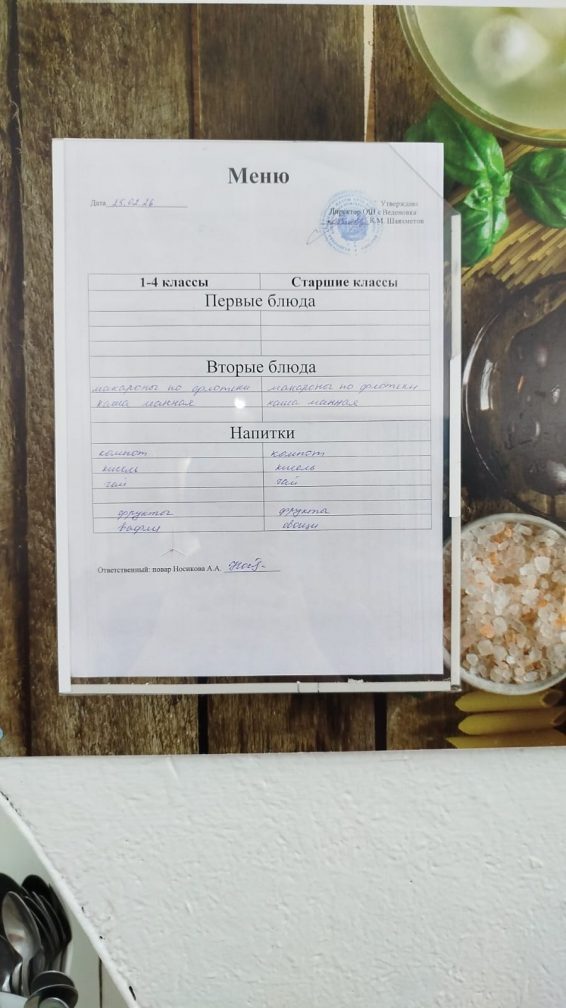 Меню
Дата 25.02.26
Утверждаю
Директор ОШ с Веденовка
К.М. Шаяхметов
1-4 классы Старшие классы
Первые блюда
Вторые блюда
макароны по флотски макароны по флотски
каша манная каша манная
Напитки
компот компот
кисель кисель
чай чай
фрукты фрукты
вафли овощи
Ответственный: повар Носикова А.А.